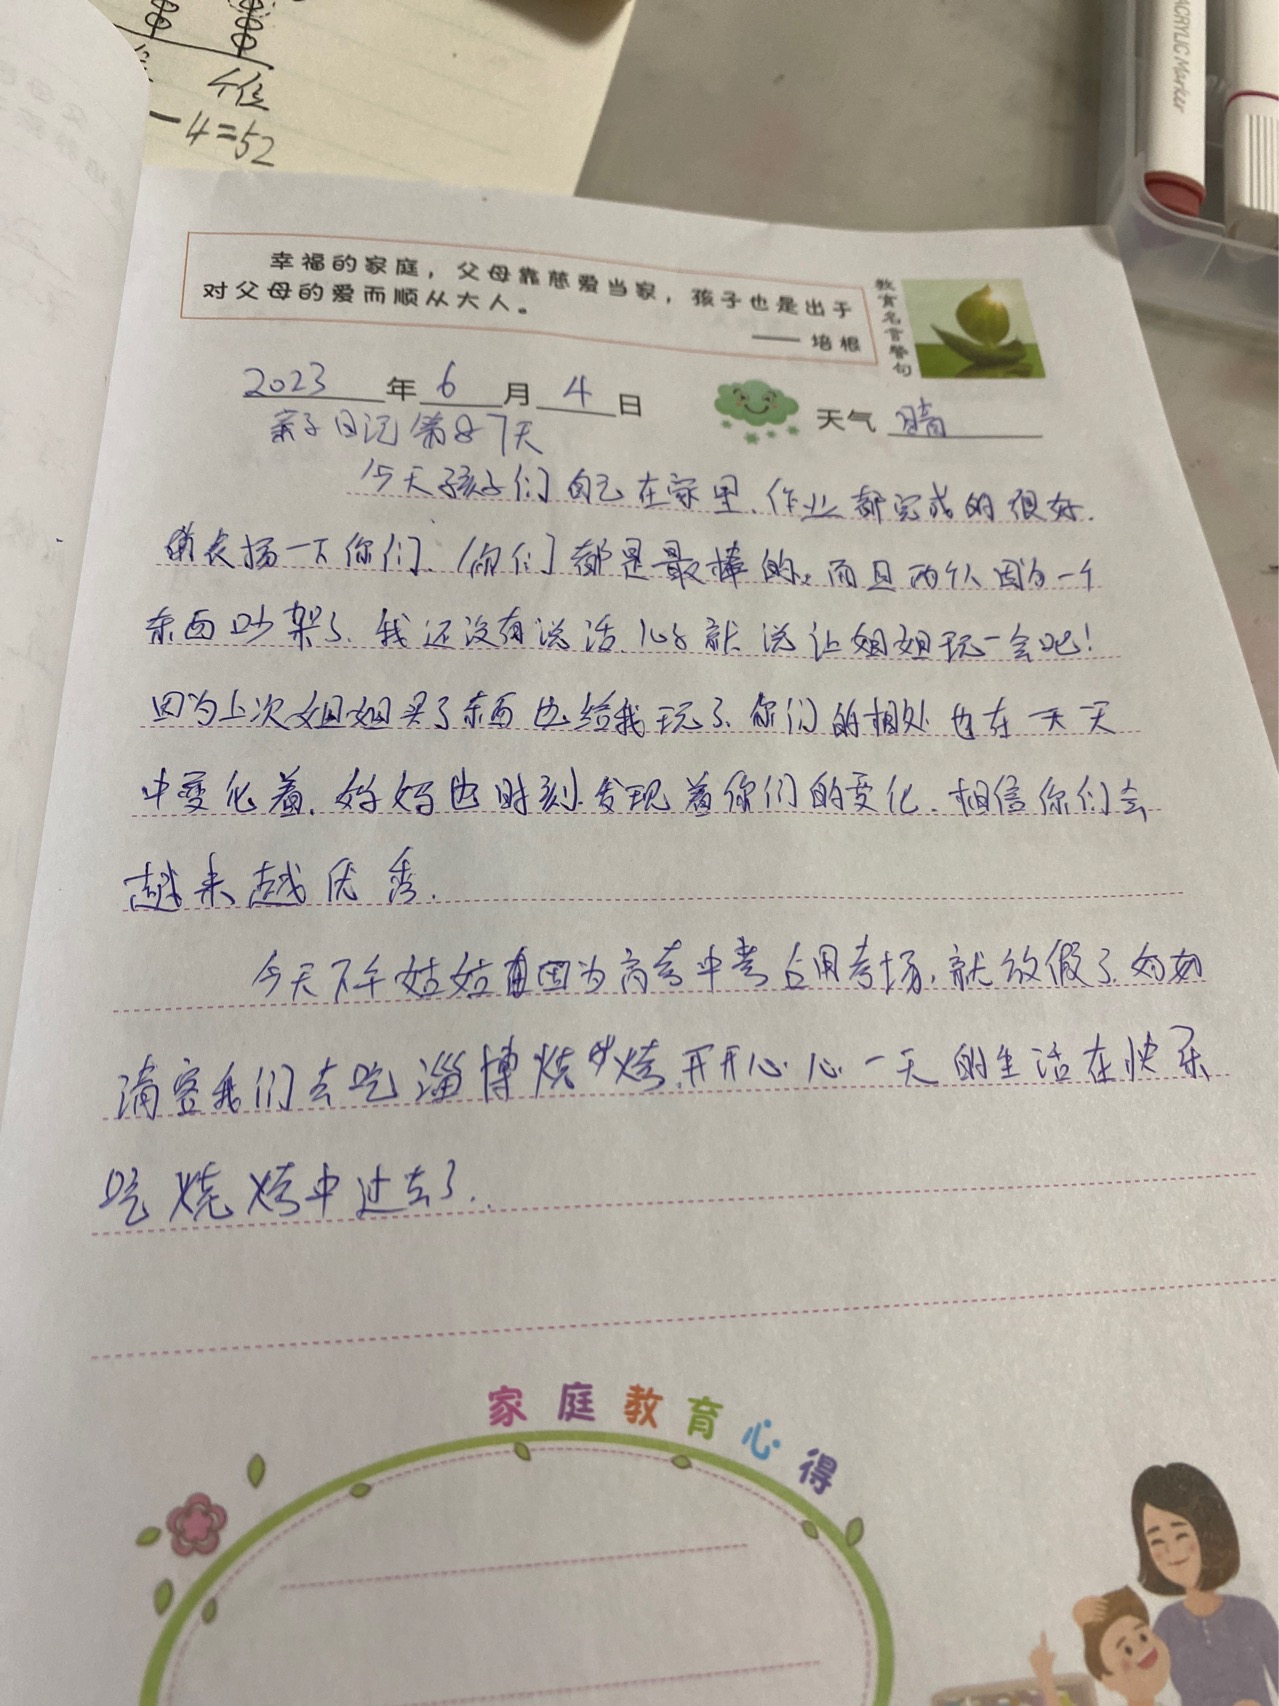 个位
-4=52
ACRYLIC Marker
幸福的家庭，父母靠慈爱当家，孩子也是出于
对父母的爱而顺从大人。
—— 培根
教育名言警句
2023年6月4日
天气 晴
亲子日记第87天
今天孩子们自己在家里、作业都完成的很好.
表扬一下你们、你们都是最棒的。而且两个人因为一个
东西吵架了、我还没有说话、儿子就说让姐姐玩一会吧！
因为上次姐姐买了东西也给我玩了、你们的相处也在一天天
中变化着、妈妈也时刻发现着你们的变化、相信你们会
越来越优秀.
今天下午姑姑因为高考中考占用考场、就放假了、姑姑
请客我们去吃淄博烧烤、开开心心一天的生活在快乐
吃烧烤中过去了.
家庭教育心得